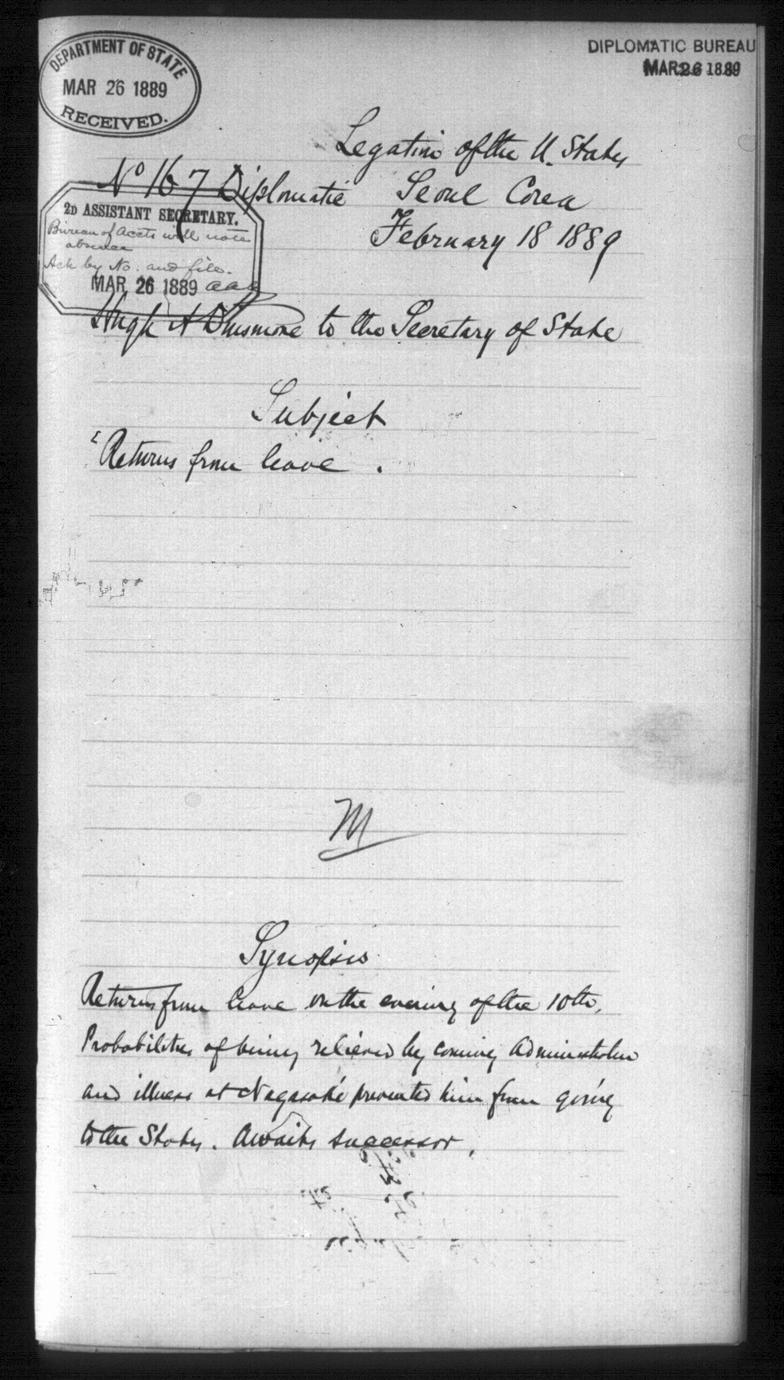 DEPARTMENT OF STATE
MAR 26 1889
RECEIVED.
DIPLOMATIC BUREAU
MAR 26 1889
Legation of the U. States
No 167 Diplomatic Seoul Corea
February 18 1889
2D ASSISTANT SECRETARY.
Bureau of Accts will note
absence
Ack by No. and file.
MAR 26 1889 aaa
Hugh A Dinsmore to the Secretary of State
Subject
"Returns from leave .
M
Synopsis
Returns from leave on the evening of the 10th.
Probabilities of being relieved by coming Administration
and illness at Nagasaki prevented him from going
to the States. Awaits successor.